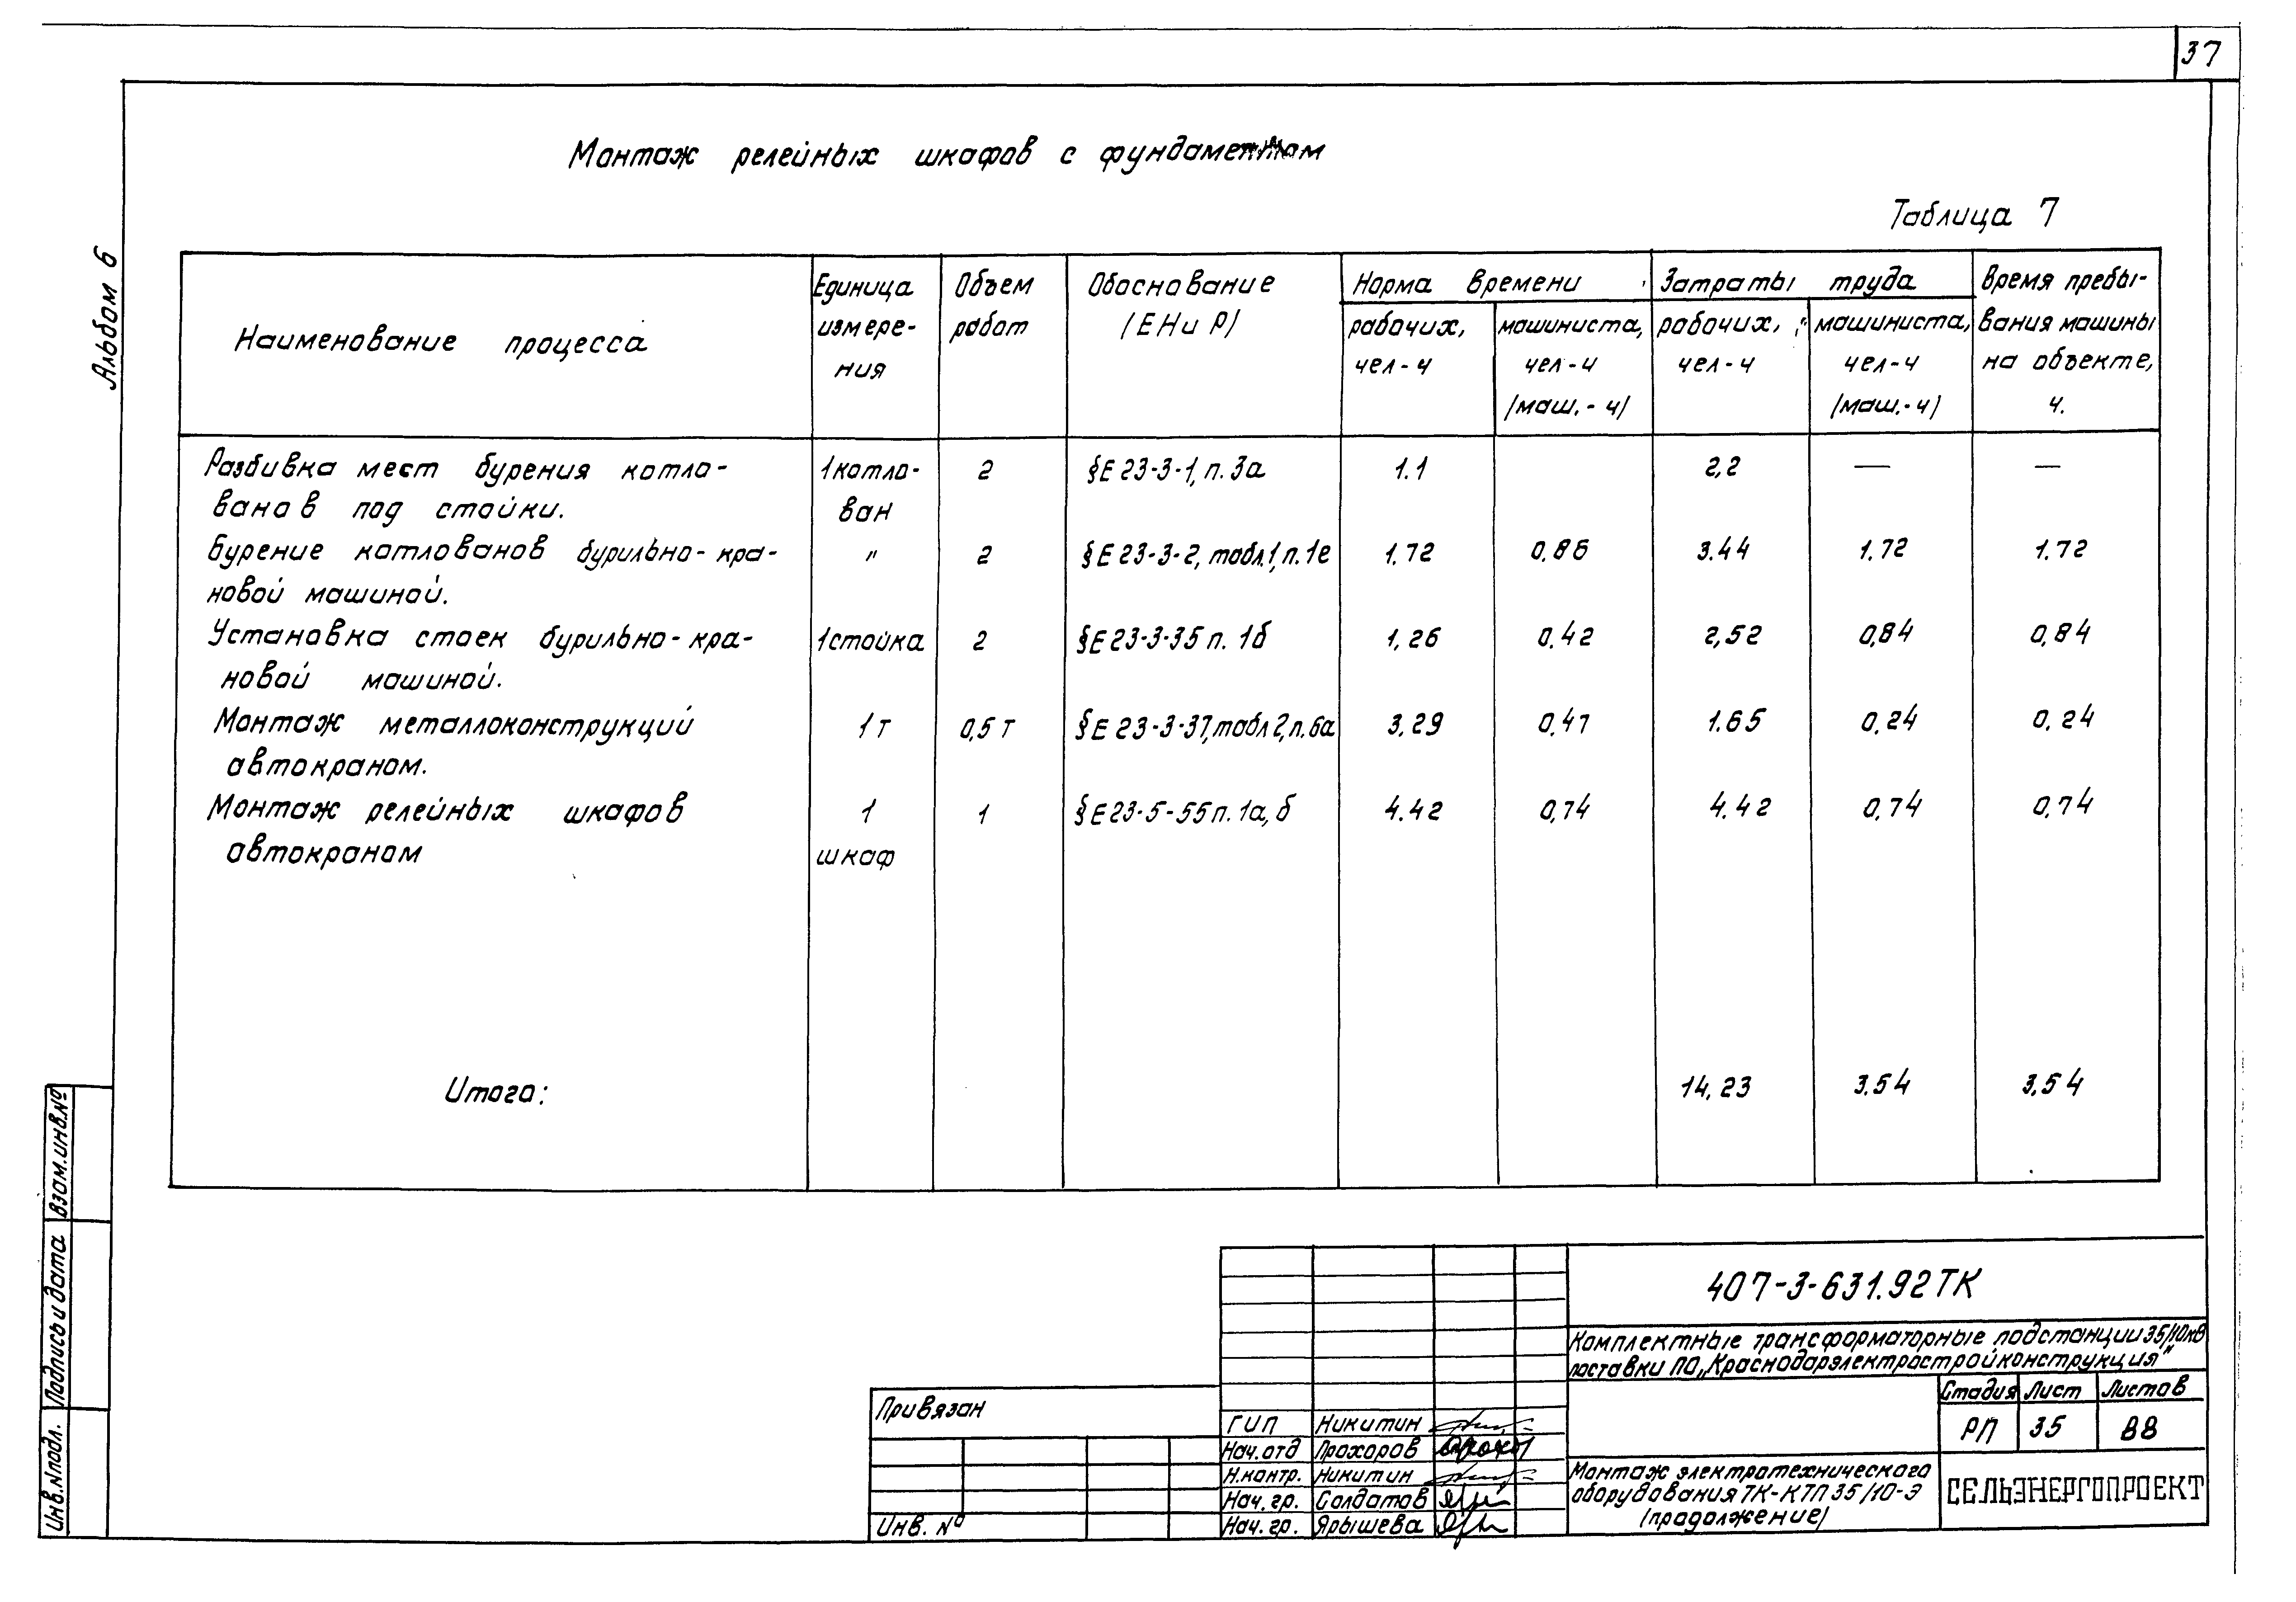 37
Альбом 6
Монтаж релейных шкафов с фундаментом
Таблица 7
Наименование процесса
Единица измере- ния
Объем работ
Обоснование (ЕНиР)
Норма времени
Затраты труда
Время пребы- вания машины на объекте, ч.
рабочих, чел-ч
машиниста, чел-ч (маш.-ч)
рабочих, чел-ч
машиниста, чел-ч (маш.-ч)
Разбивка мест бурения котло- 1 котло- 2 §Е 23-3-1, п. 3а 1.1 2,2 — —
ванов под стойки. ван
Бурение котлованов бурильно-кра- " 2 §Е 23-3-2, табл.1, п.1е 1.72 0.86 3.44 1.72 1.72
новой машиной.
Установка стоек бурильно-кра- 1 стойка 2 §Е 23-3-35 п. 1б 1,26 0.42 2,52 0,84 0,84
новой машиной.
Монтаж металлоконструкций 1 т 0,5 т §Е 23-3-37, табл 2, п. 6а 3.29 0,47 1.65 0.24 0.24
автокраном.
Монтаж релейных шкафов 1 1 §Е 23-5-55 п. 1а, б 4.42 0,74 4.42 0,74 0,74
автокраном шкаф
Итого: 14,23 3.54 3.54
Взам.инв.№
Подпись и дата
Инв.№подл.
407-3-631.92ТК
Комплектные трансформаторные подстанции 35/10кВ
поставки ПО „Краснодарэлектростройконструкция"
Привязан
Инв. №
ГИП Никитин
Нач.отд Прохоров
Н.контр. Никитин
Нач. гр. Солдатов
Нач. гр. Ярышева
Стадия Лист Листов
РП 35 88
Монтаж электротехнического
оборудования ТК-КТП 35/10-Э
(продолжение)
СЕЛЬЭНЕРГОПРОЕКТ